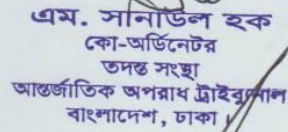 এম. সানাউল হক
কো-অর্ডিনেটর
তদন্ত সংস্থা
আন্তর্জাতিক অপরাধ ট্রাইবুনাল
বাংলাদেশ, ঢাকা।